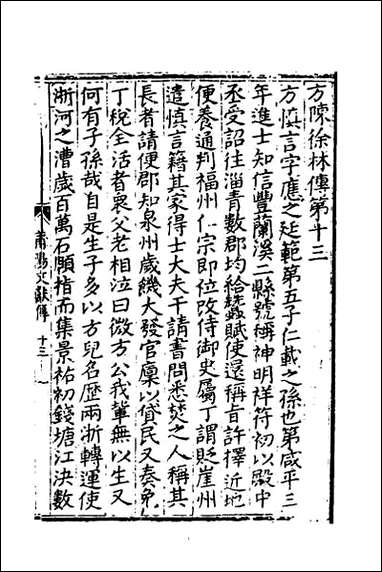 方陳徐林傳第十三
方慎言字應之廷範第五子仁載之孫也第咸平三
年進士知信豐蘭溪二縣號稱神明祥符初以殿中
丞受詔往淄青數郡均給蠶賦使還稱旨許擇近地
便養通判福州仁宗即位改侍御史屬丁謂貶崖州
遣慎言籍其家得士大夫干請書問悉焚之人稱其
長者請便郡知泉州歲饑大發官廩以貸民又奏免
丁稅全活者衆父老相泣曰微方公我輩無以生又
何有子孫哉自是生子多以方兒名歷兩浙轉運使
浙河之漕歲百萬石頤指而集景祐初錢塘江決數
莆陽文獻傳
十三
一